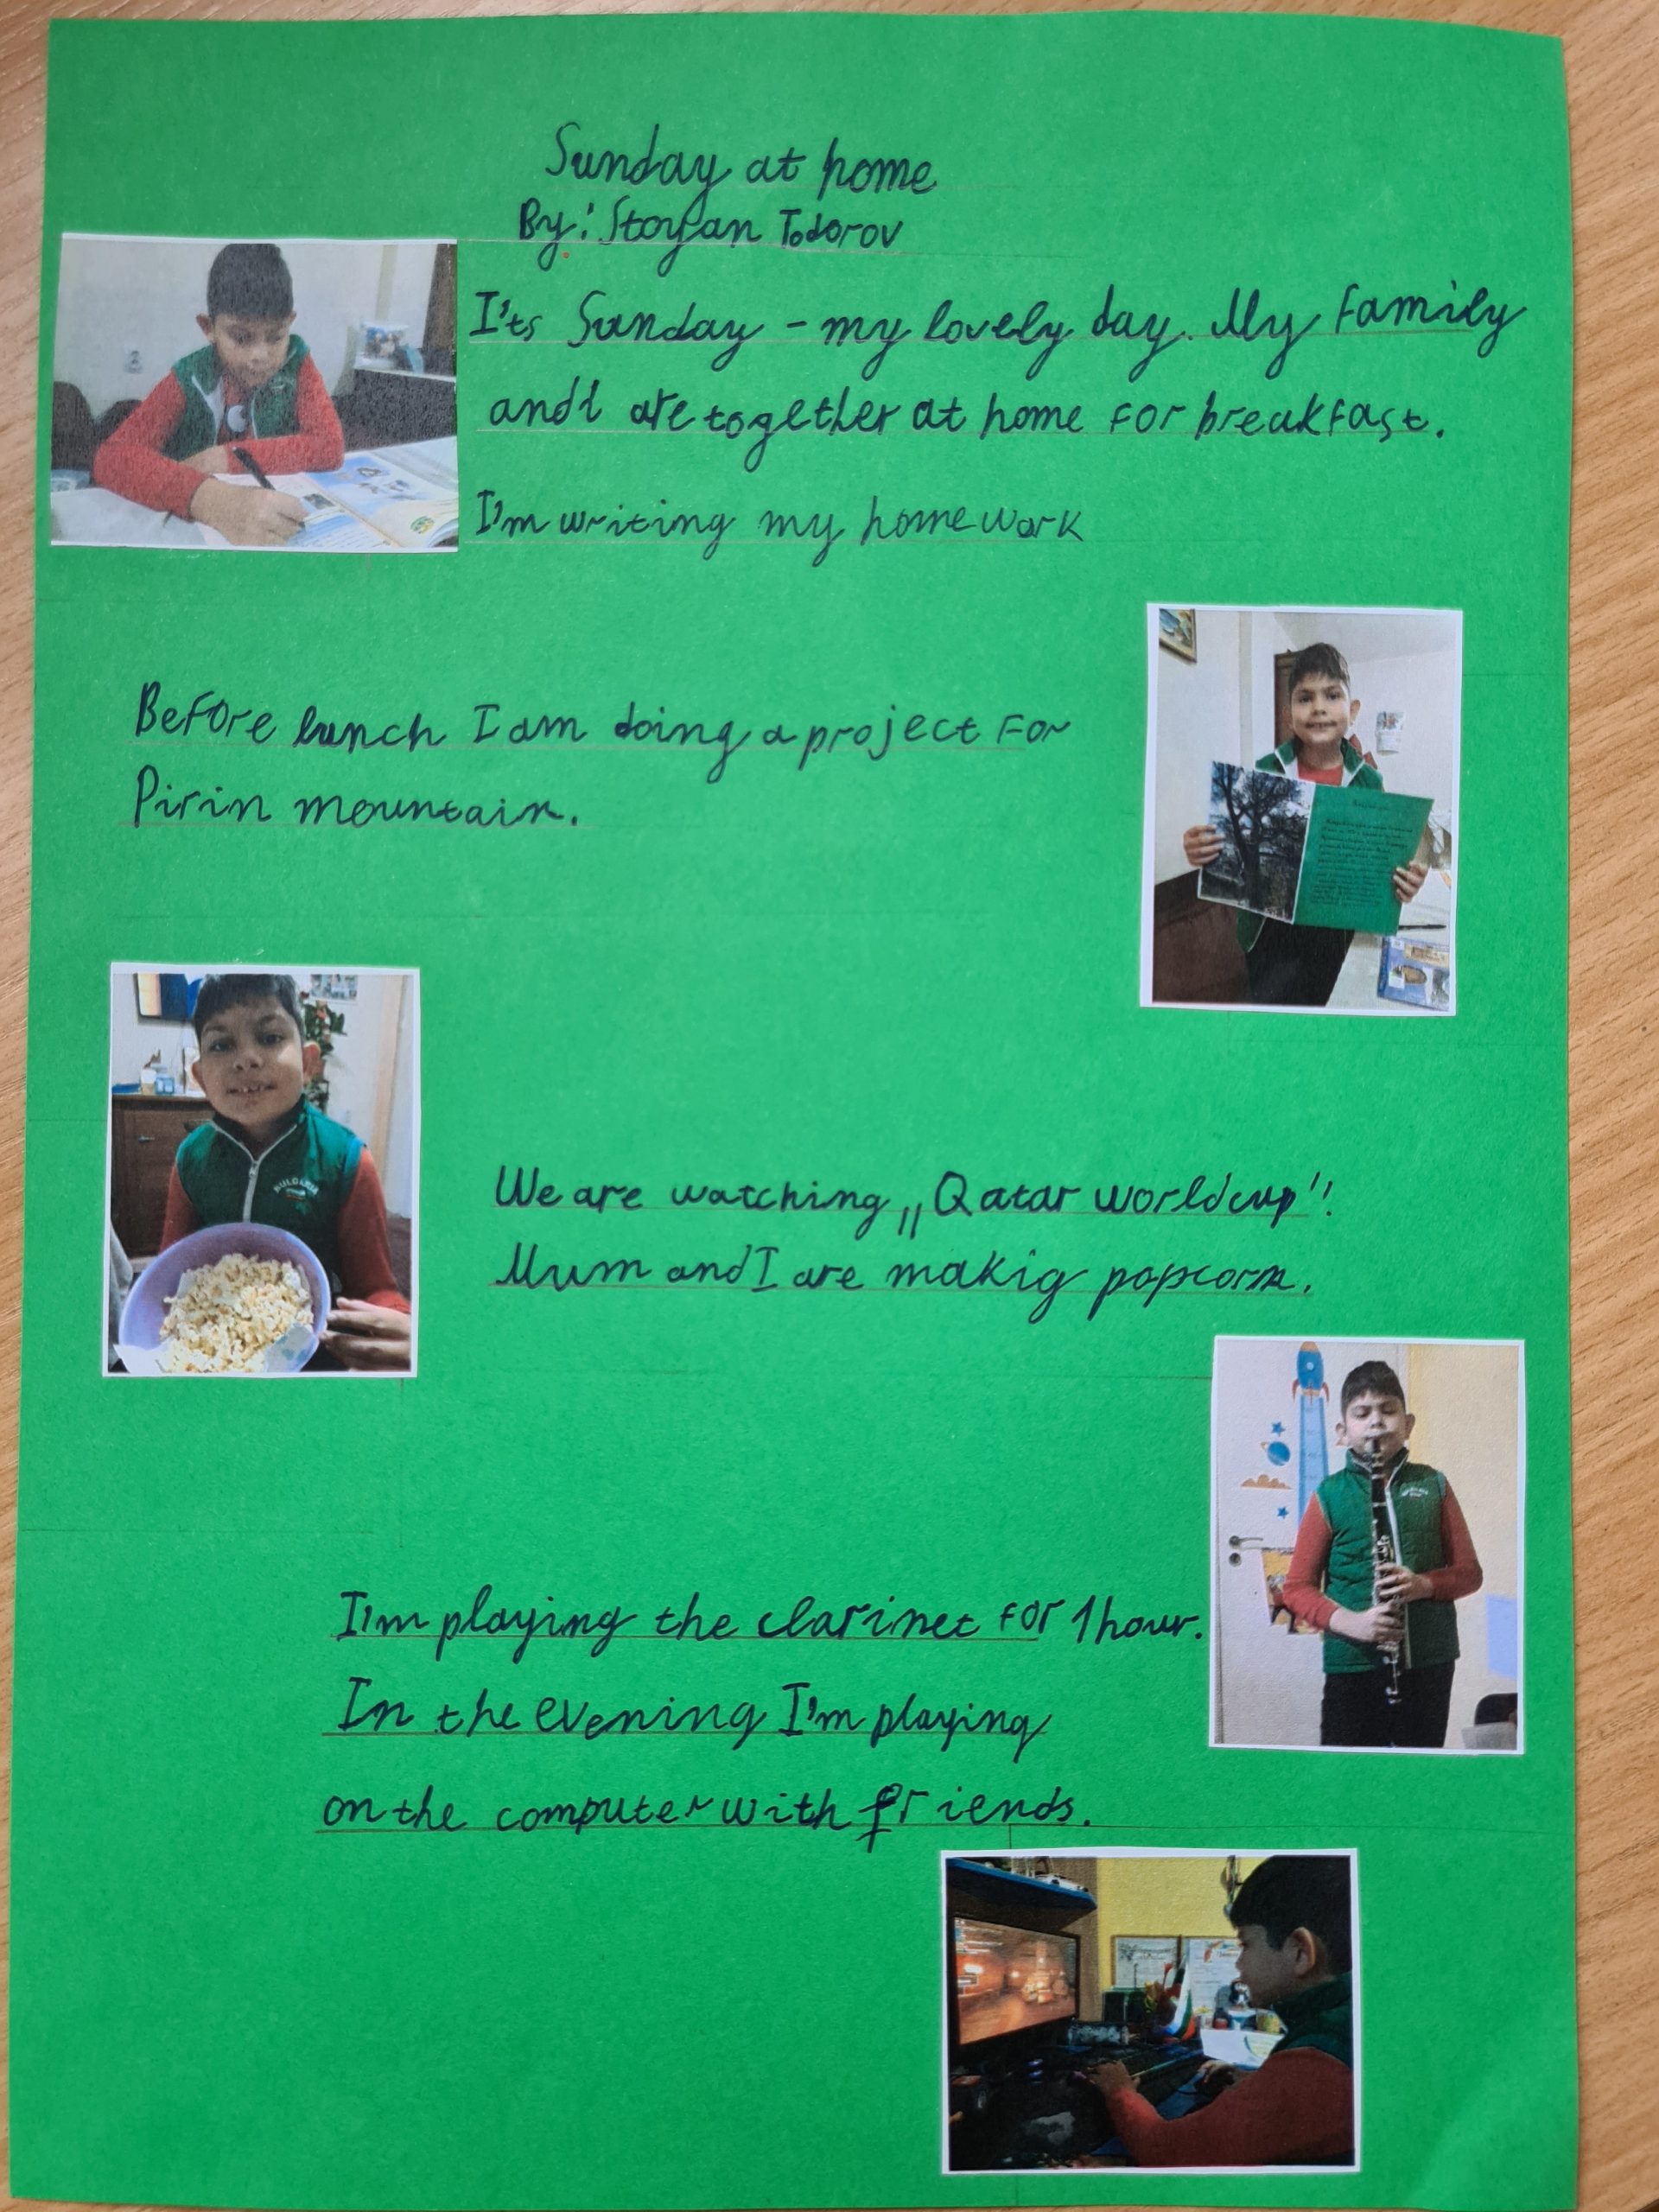 Sunday at home
By: Stoyan Todorov
I'ts Sunday - my lovely day. My family
and I are together at home for breakfast.
I'm writing my homework
Before lunch I am doing a project for
Pirin mountain.
BULGARIA
We are watching „Qatar world cup"!
Mum and I are makig popcorn.
I'm playing the clarinet for 1 hour.
In the evening I'm playing
on the computer with friends.